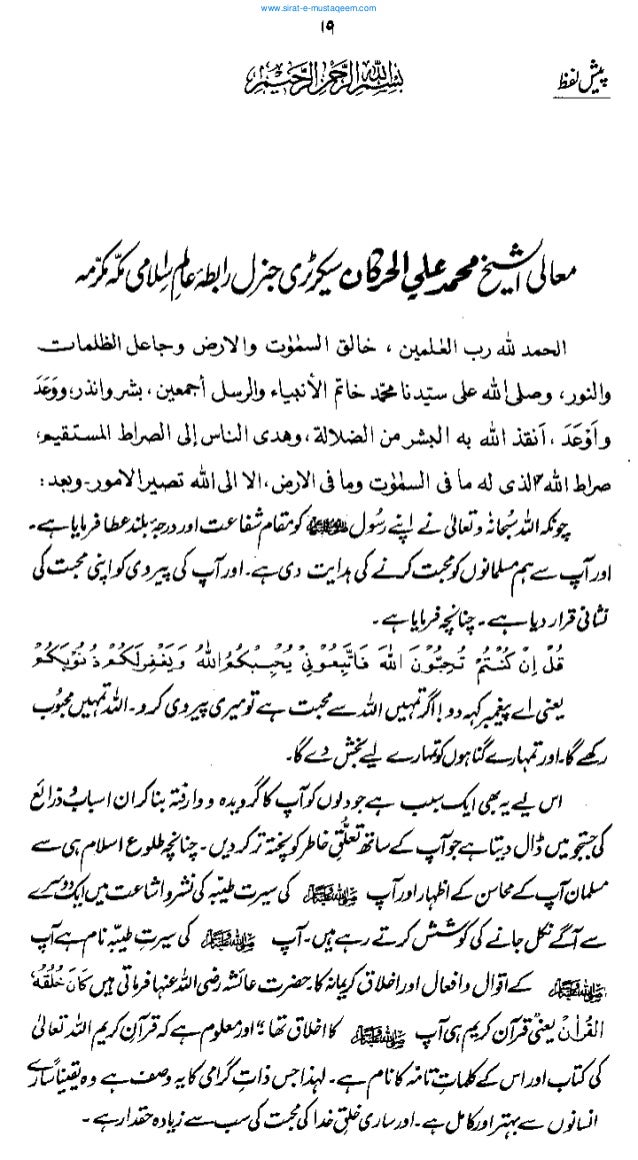 www.sirat-e-mustaqeem.com
۱۵
پیش لفظ
بسم الله الرحمن الرحيم
معالی الشیخ محمد علي الحركان سیکرٹری جنرل رابطۂ عالم اسلامی مکہ مکرمہ
الحمد لله رب العٰلمين ، خالق السمٰوٰت والارض وجاعل الظلمات
والنور، وصلى الله على سيّدنا محمّد خاتم الأنبياء والرسل أجمعين ، بشر وانذر، ووَعَدَ
وأوْعَدَ ، أنقذ الله به البشر من الضلالة، وهدى الناس إلى الصراط المستقيم،
صراط الله الذى له ما فى السمٰوٰت وما فى الارض، الا الى الله تصير الامور۔ وبعد :
چونکہ اللہ سبحانہٗ وتعالیٰ نے اپنے رسول ﷺ کو مقامِ شفاعت اور درجۂ بلند عطا فرمایا ہے۔
اور آپ سے ہم مسلمانوں کو محبت کرنے کی ہدایت دی ہے۔ اور آپ کی پیروی کو اپنی محبت کی
نشانی قرار دیا ہے۔ چنانچہ فرمایا ہے۔
قُلْ اِنْ كُنْتُمْ تُحِبُّوْنَ اللهَ فَاتَّبِعُوْنِيْ يُحْبِبْكُمُ اللهُ وَيَغْفِرْلَكُمْ ذُنُوْبَكُمْ
یعنی اے پیغمبر کہہ دو! اگر تمہیں اللہ سے محبت ہے تو میری پیروی کرو۔ اللہ تمہیں محبوب
رکھے گا۔ اور تمہارے گناہوں کو تمہارے لیے بخش دے گا۔
اس لیے یہ بھی ایک سبب ہے جو دلوں کو آپ کا گرویدہ و وارفتہ بنا کر ان اسباب و ذرائع
کی جستجو میں ڈال دیتا ہے جو آپ کے ساتھ تعلّقِ خاطر کو پختہ تر کر دیں۔ چنانچہ طلوع اسلام ہی سے
مسلمان آپ کے محاسن کے اظہار اور آپ ﷺ کی سیرت طیبہ کی نشر و اشاعت میں ایک دوسرے
سے آگے نکل جانے کی کوشش کرتے رہے ہیں۔ آپ ﷺ کی سیرتِ طیبہ نام ہے آپ
ﷺ کے اقوال و افعال اور اخلاق کریمانہ کا۔ حضرت عائشہ رضی اللہ عنہا فرماتی ہیں كَانَ خُلُقُهُ
الْقُرْاٰن یعنی قرآن کریم ہی آپ ﷺ کا اخلاق تھا “ اور معلوم ہے کہ قرآن کریم اللہ تعالیٰ
کی کتاب اور اس کے کلماتِ تامہ کا نام ہے۔ لہذا جس ذات گرامی کا یہ وصف ہے وہ یقیناً سارے
انسانوں سے بہتر اور کامل ہے۔ اور ساری خلقِ خدا کی محبت کی سب سے زیادہ حقدار ہے۔